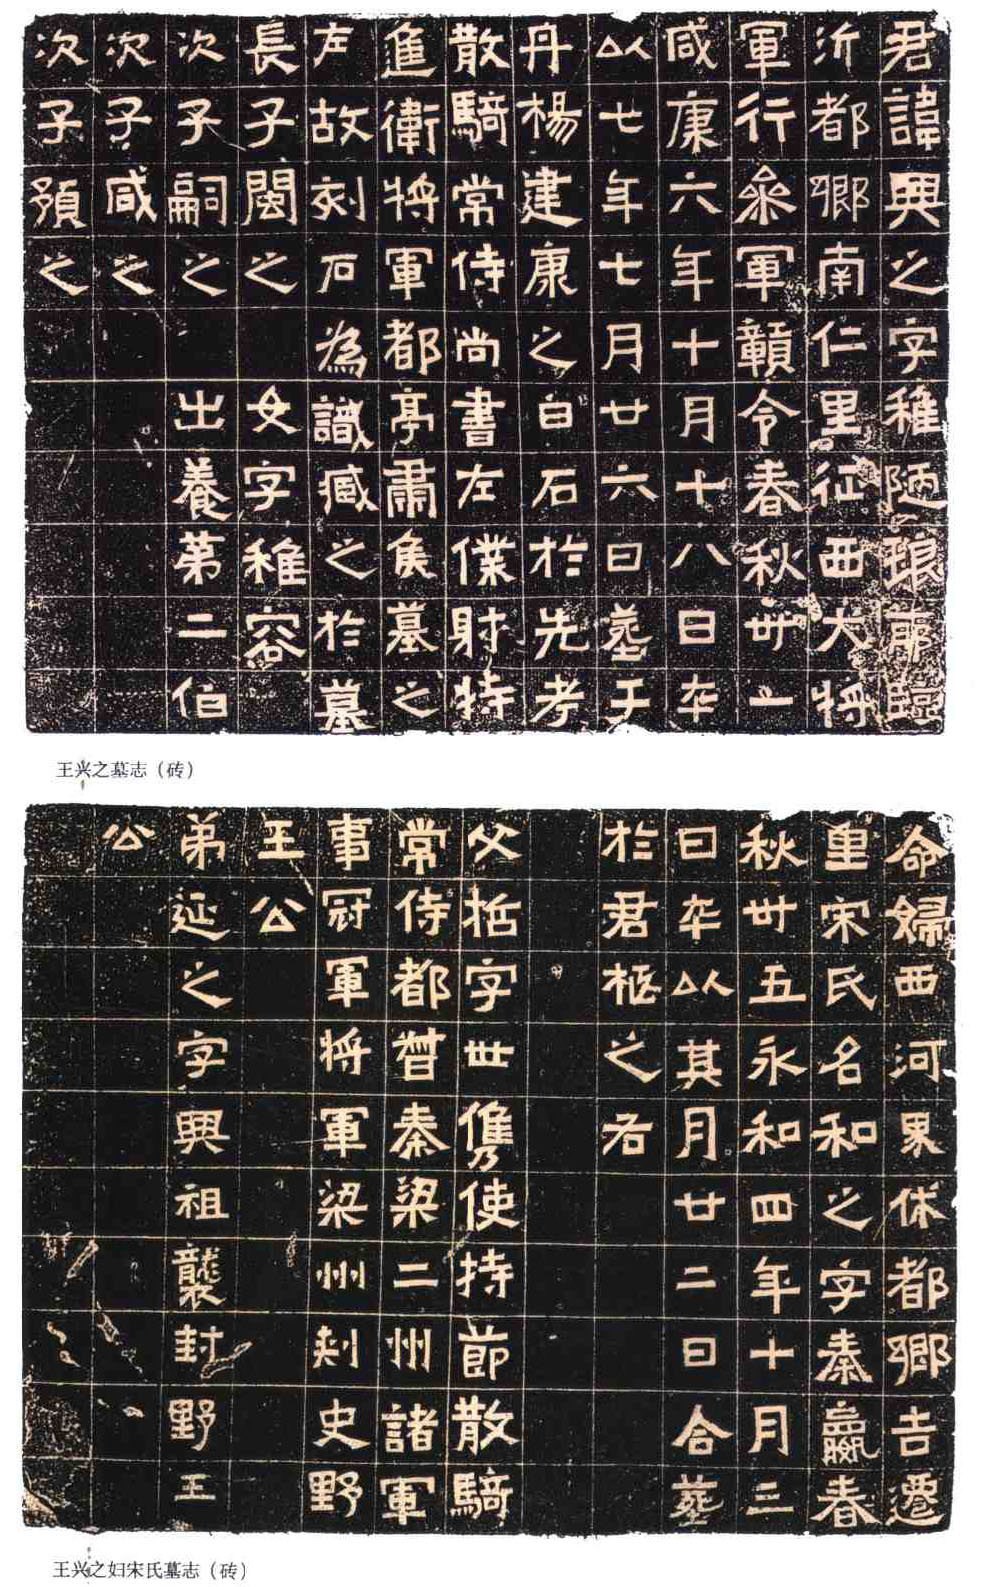 君諱興之字稚陋琅耶臨
沂都鄉南仁里征西大將
軍行參軍贛令春秋卅一
咸康六年十月十八日卒
以七年七月廿六日葬于
丹楊建康之白石於先考
散騎常侍尚書左僕射特
進衛將軍都亭肅侯墓之
左故刻石為識臧之於墓
長子閩之女字稚容
次子嗣之出養第二伯
次子咸之
次子預之
王兴之墓志（砖）
命婦西河界休都鄉吉遷
里宋氏名和之字秦嬴春
秋卅五永和四年十月三
日卒以其月廿二日合葬
於君柩之右
父哲字世儁使持節散騎
常侍都督秦梁二州諸軍
事冠軍將軍梁州刺史野
王公
弟延之字興祖襲封野王
公
王兴之妇宋氏墓志（砖）